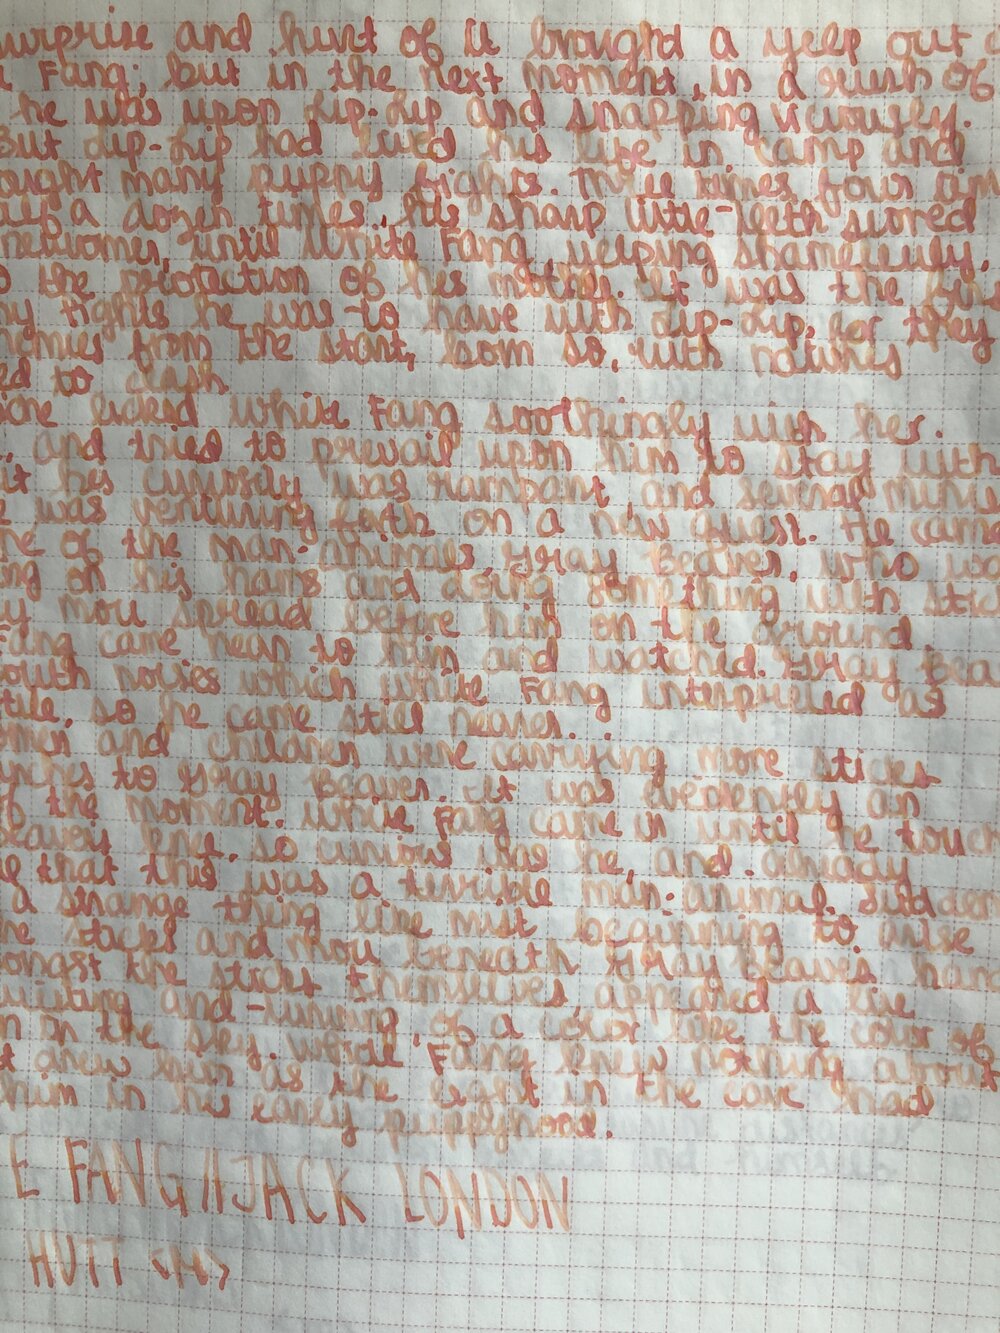 urprise and hurt of it brought a yelp out o
Fang; but in the next moment, in a rush of
he was upon Lip-lip and snapping viciously.
But Lip-lip had lived his life in camp and
ought many puppy fights. Three times, four tim
alf a dozen times, his sharp little teeth scored
newcomer, until White Fang, yelping shamelessly,
o the protection of his mother. It was the firs
ny fights he was to have with Lip-lip, for they
nemies from the start, born so, with natures
ed to clash.
iche licked White Fang soothingly with her
, and tried to prevail upon him to stay with
t his curiosity was rampant and several minu
e was venturing forth on a new quest. He came
ne of the man-animals, Gray Beaver who wa
ng on his hams and doing something with stick
y moss spread before him on the ground.
Fang came near to him and watched. Gray Bea
outh noises which White Fang interpreted as
tile, so he came still nearer.
men and children were carrying more sticks
nches to Gray Beaver. It was evidently an
of the moment. White Fang came in until he touch
Beaver's knee, so curious was he, and already
ul that this was a terrible man-animal. Sudden
a strange thing like mist beginning to arise
he sticks and moss beneath Gray Beaver's hand
ongst the sticks themselves, appeared a live
wisting and turning, of a color like the color of
n in the sky. White Fang knew nothing about
t drew him as the light in the cave had
him in his early puppyhood.
E FANG // JACK LONDON
HUTT <M>